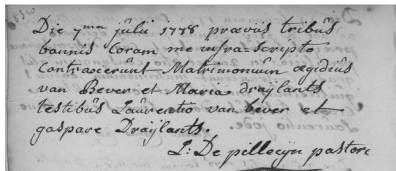 Die 7ma julii 1778 præviis tribus
bannis Coram me infra-scripto
contraxerunt Matrimonium ægidius
van Bever et Maria draÿlants
testibus Laurentio van bever et
gaspare Draÿlants.
J: De pillecyn pastore